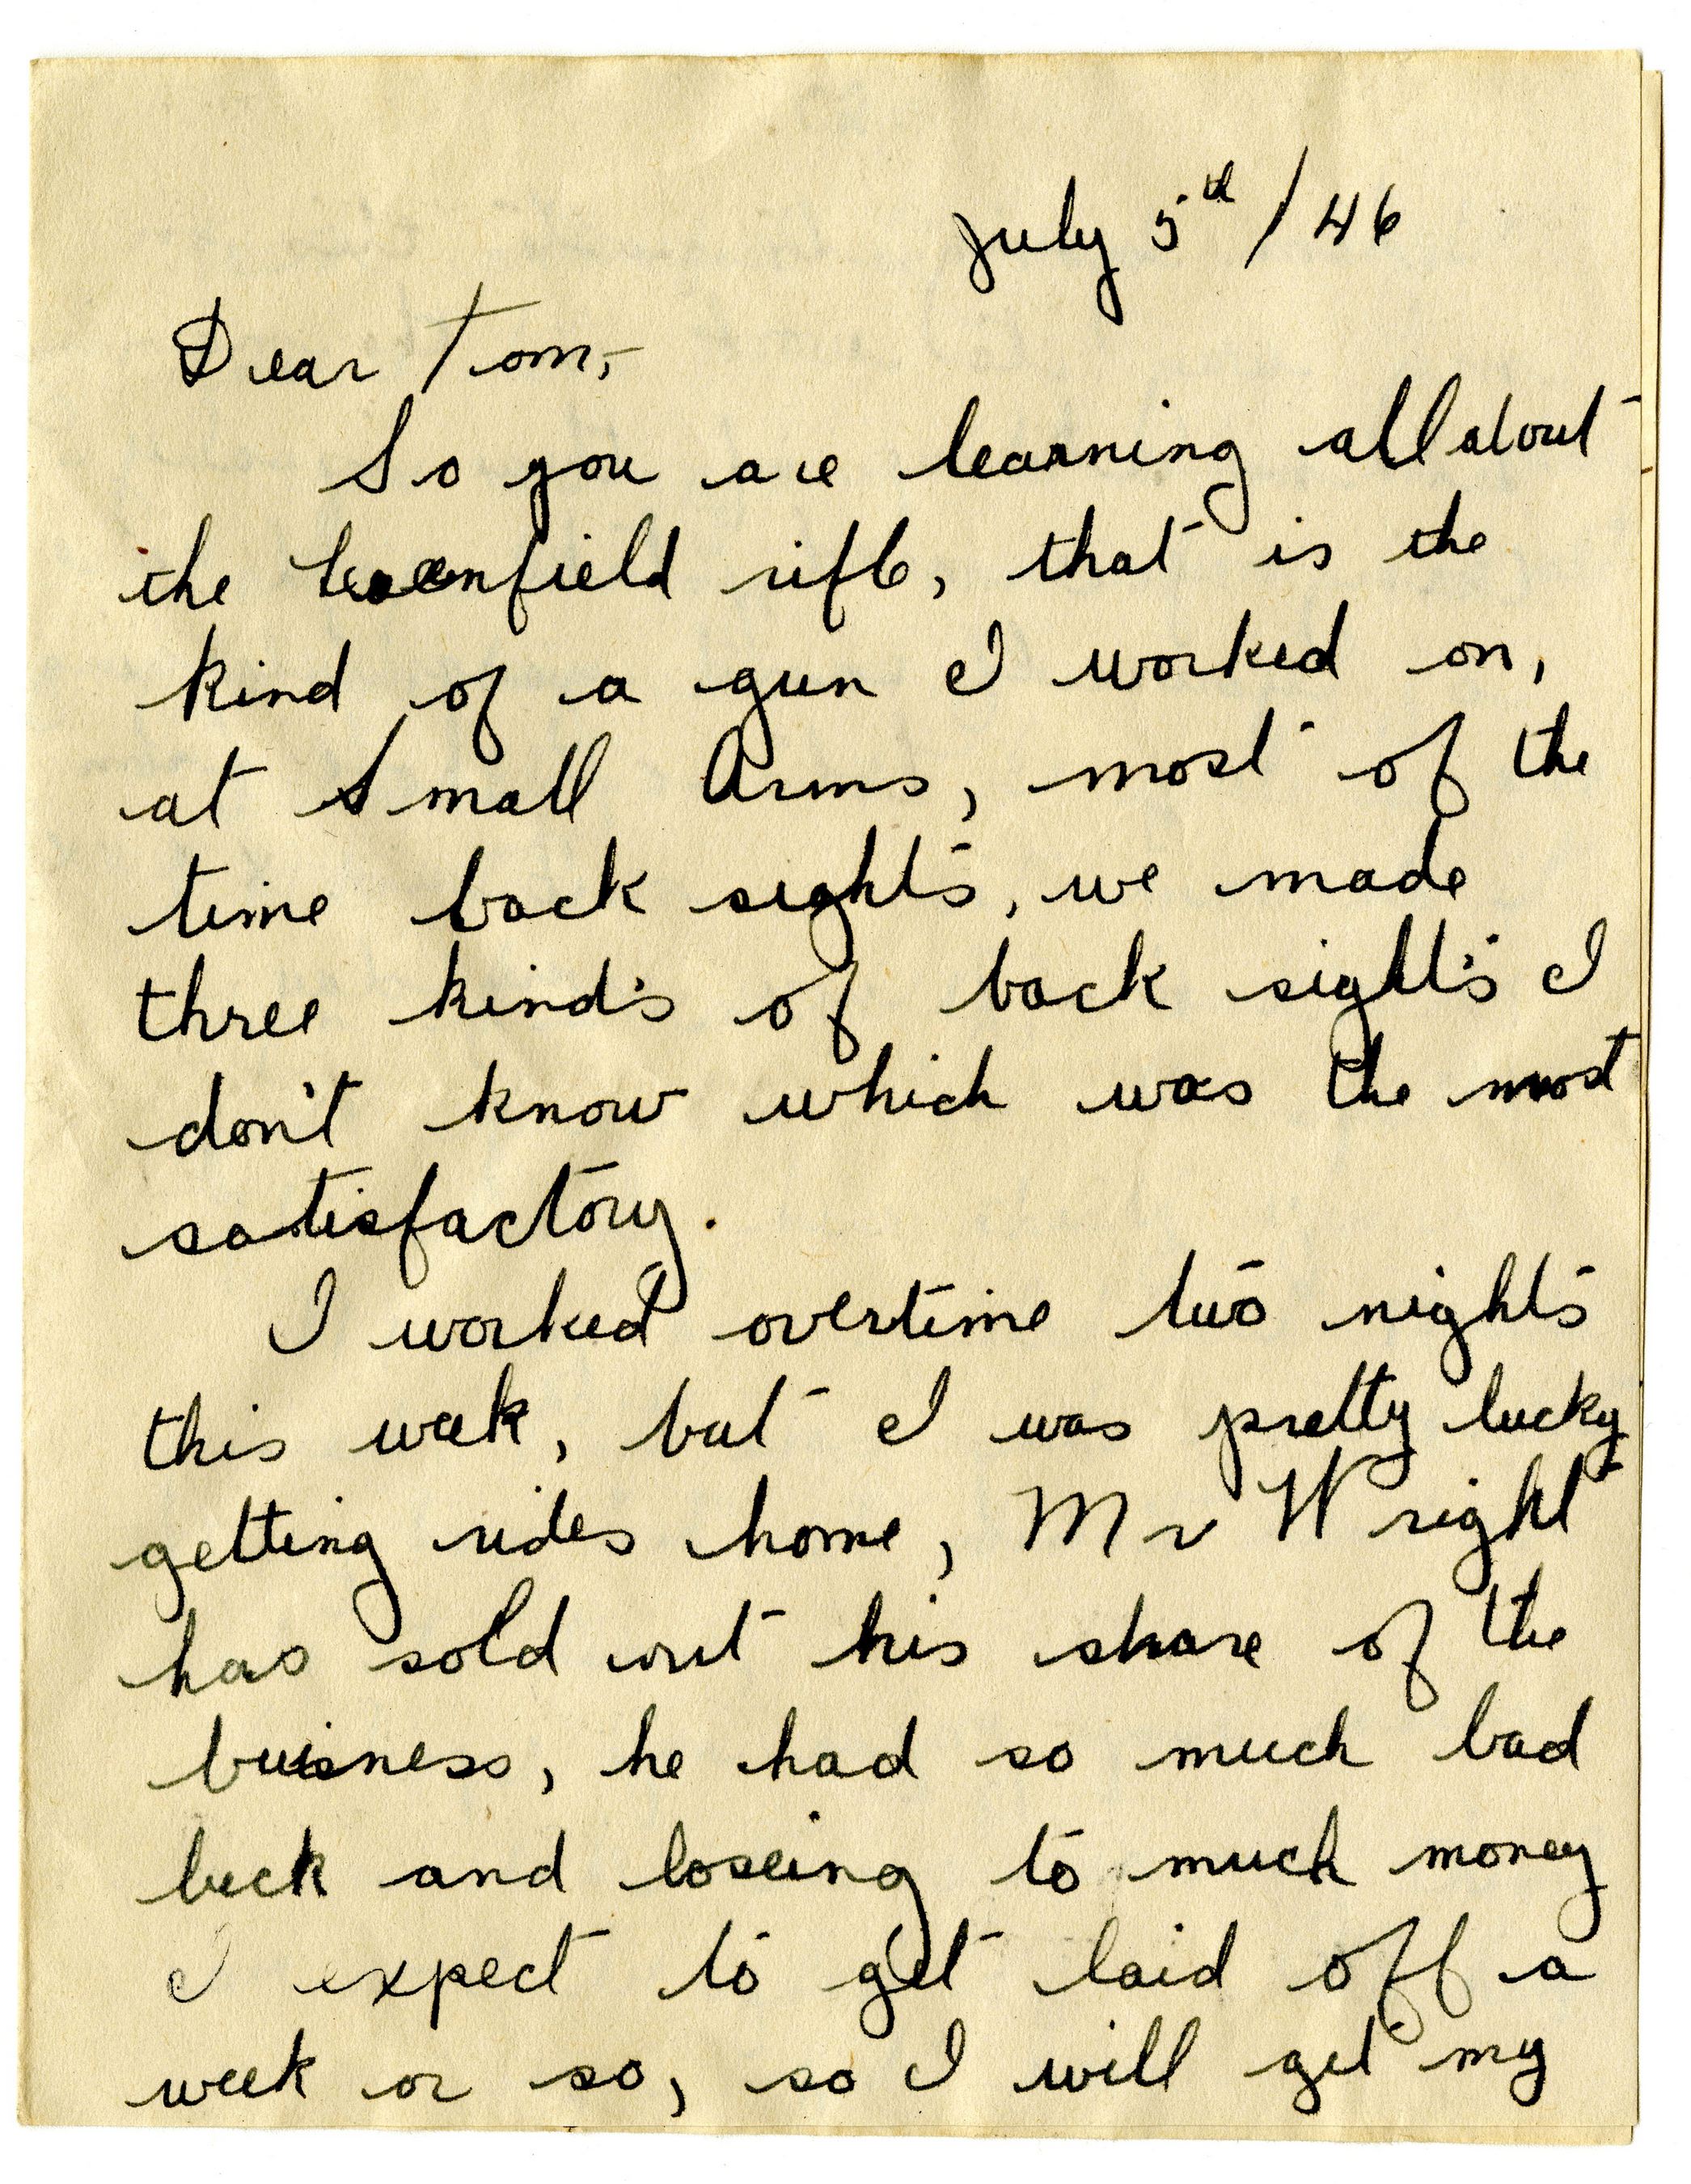 July 5th / 46
Dear Tom,
So you are learning all about
the Leeenfield rifle, that is the
kind of a gun I worked on,
at Small Arms, most of the
time back sights, we made
three kind's of back sight's I
don't know which was the most
satisfactory.
I worked overtime two nights
this week, but I was pretty lucky
getting rides home, Mr Wright
has sold out his share of the
buisness, he had so much bad
luck and loseing to much money
I expect to get laid off a
week or so, so I will get my